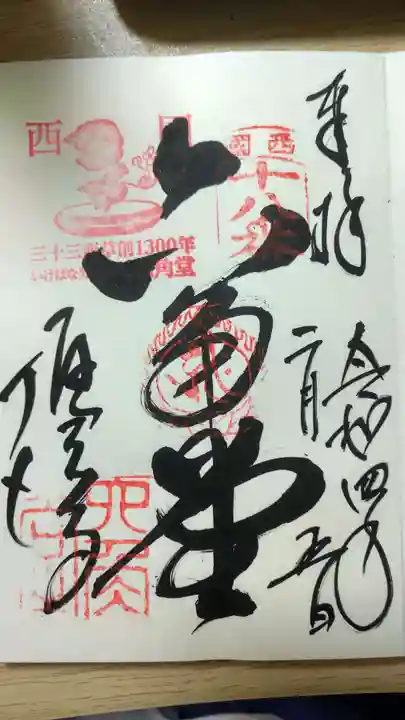 奉拝
令和四年
二月
五日
西国
十八番
六角堂
西国
三十三所草創1300年
いけばな
角堂
頂法寺
六角